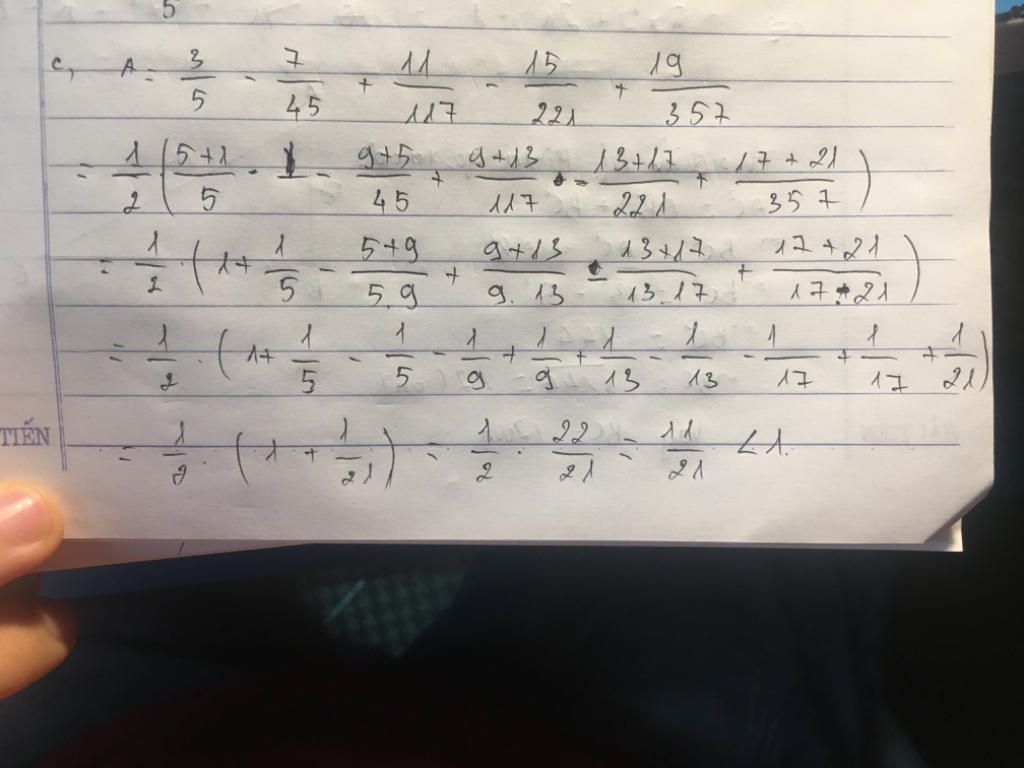 5
c, A = 3/5 - 7/45 + 11/117 - 15/221 + 19/357
= 1/2 (5+1/5 - 9+5/45 + 9+13/117 - 13+17/221 + 17+21/357)
= 1/2 . (1 + 1/5 - 5+9/5.9 + 9+13/9.13 - 13+17/13.17 + 17+21/17.21)
= 1/2 . (1 + 1/5 - 1/5 - 1/9 + 1/9 + 1/13 - 1/13 - 1/17 + 1/17 + 1/21)
TIẾN
= 1/2 . (1 + 1/21) = 1/2 . 22/21 = 11/21 < 1.